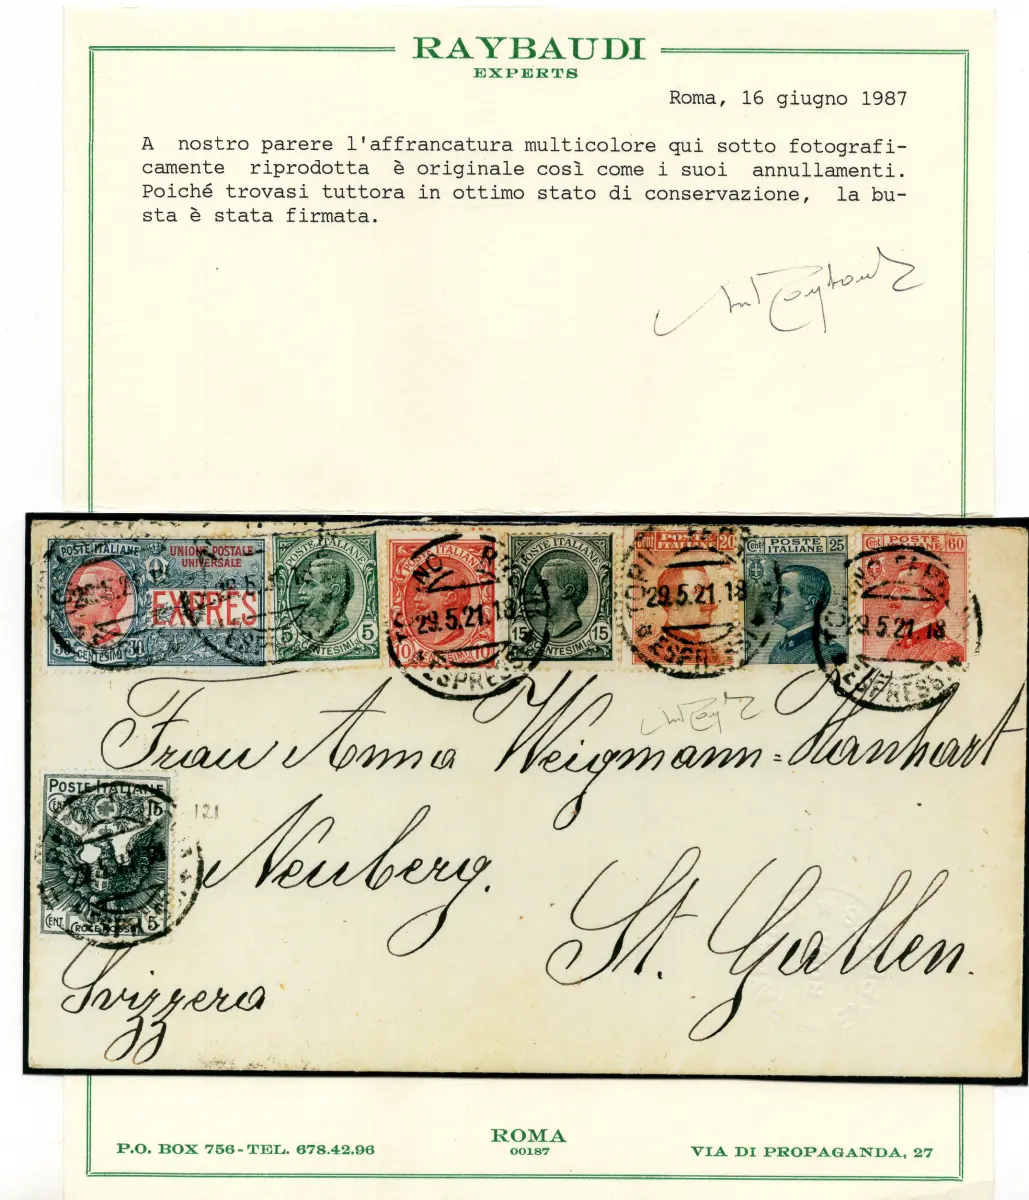 RAYBAUDI
EXPERTS
Roma, 16 giugno 1987
A nostro parere l'affrancatura multicolore qui sotto fotografi-
camente riprodotta è originale così come i suoi annullamenti.
Poiché trovasi tuttora in ottimo stato di conservazione, la bu-
sta è stata firmata.
POSTE ITALIANE
UNIONE POSTALE
UNIVERSALE
EXPRES
30 CENTESIMI 30
POSTE ITALIANE
5 CENTESIMI 5
POSTE ITALIANE
10 CENTESIMI 10
29.5.21.18
ESPRESSI
POSTE ITALIANE
15 CENTESIMI 15
POSTE ITALIANE 20
29.5.21.18
Cent POSTE ITALIANE 25
Cent POSTE ITALIANE 60
29.5.21.18
ESPRESSI
Frau Anna Weigmann=Hanhart
POSTE ITALIANE
CENT 15
CENT CROCE ROSSA 5
121
Neuberg.
St. Gallen.
Svizzera
P.O. BOX 756 - TEL. 678.42.96
ROMA
00187
VIA DI PROPAGANDA, 27